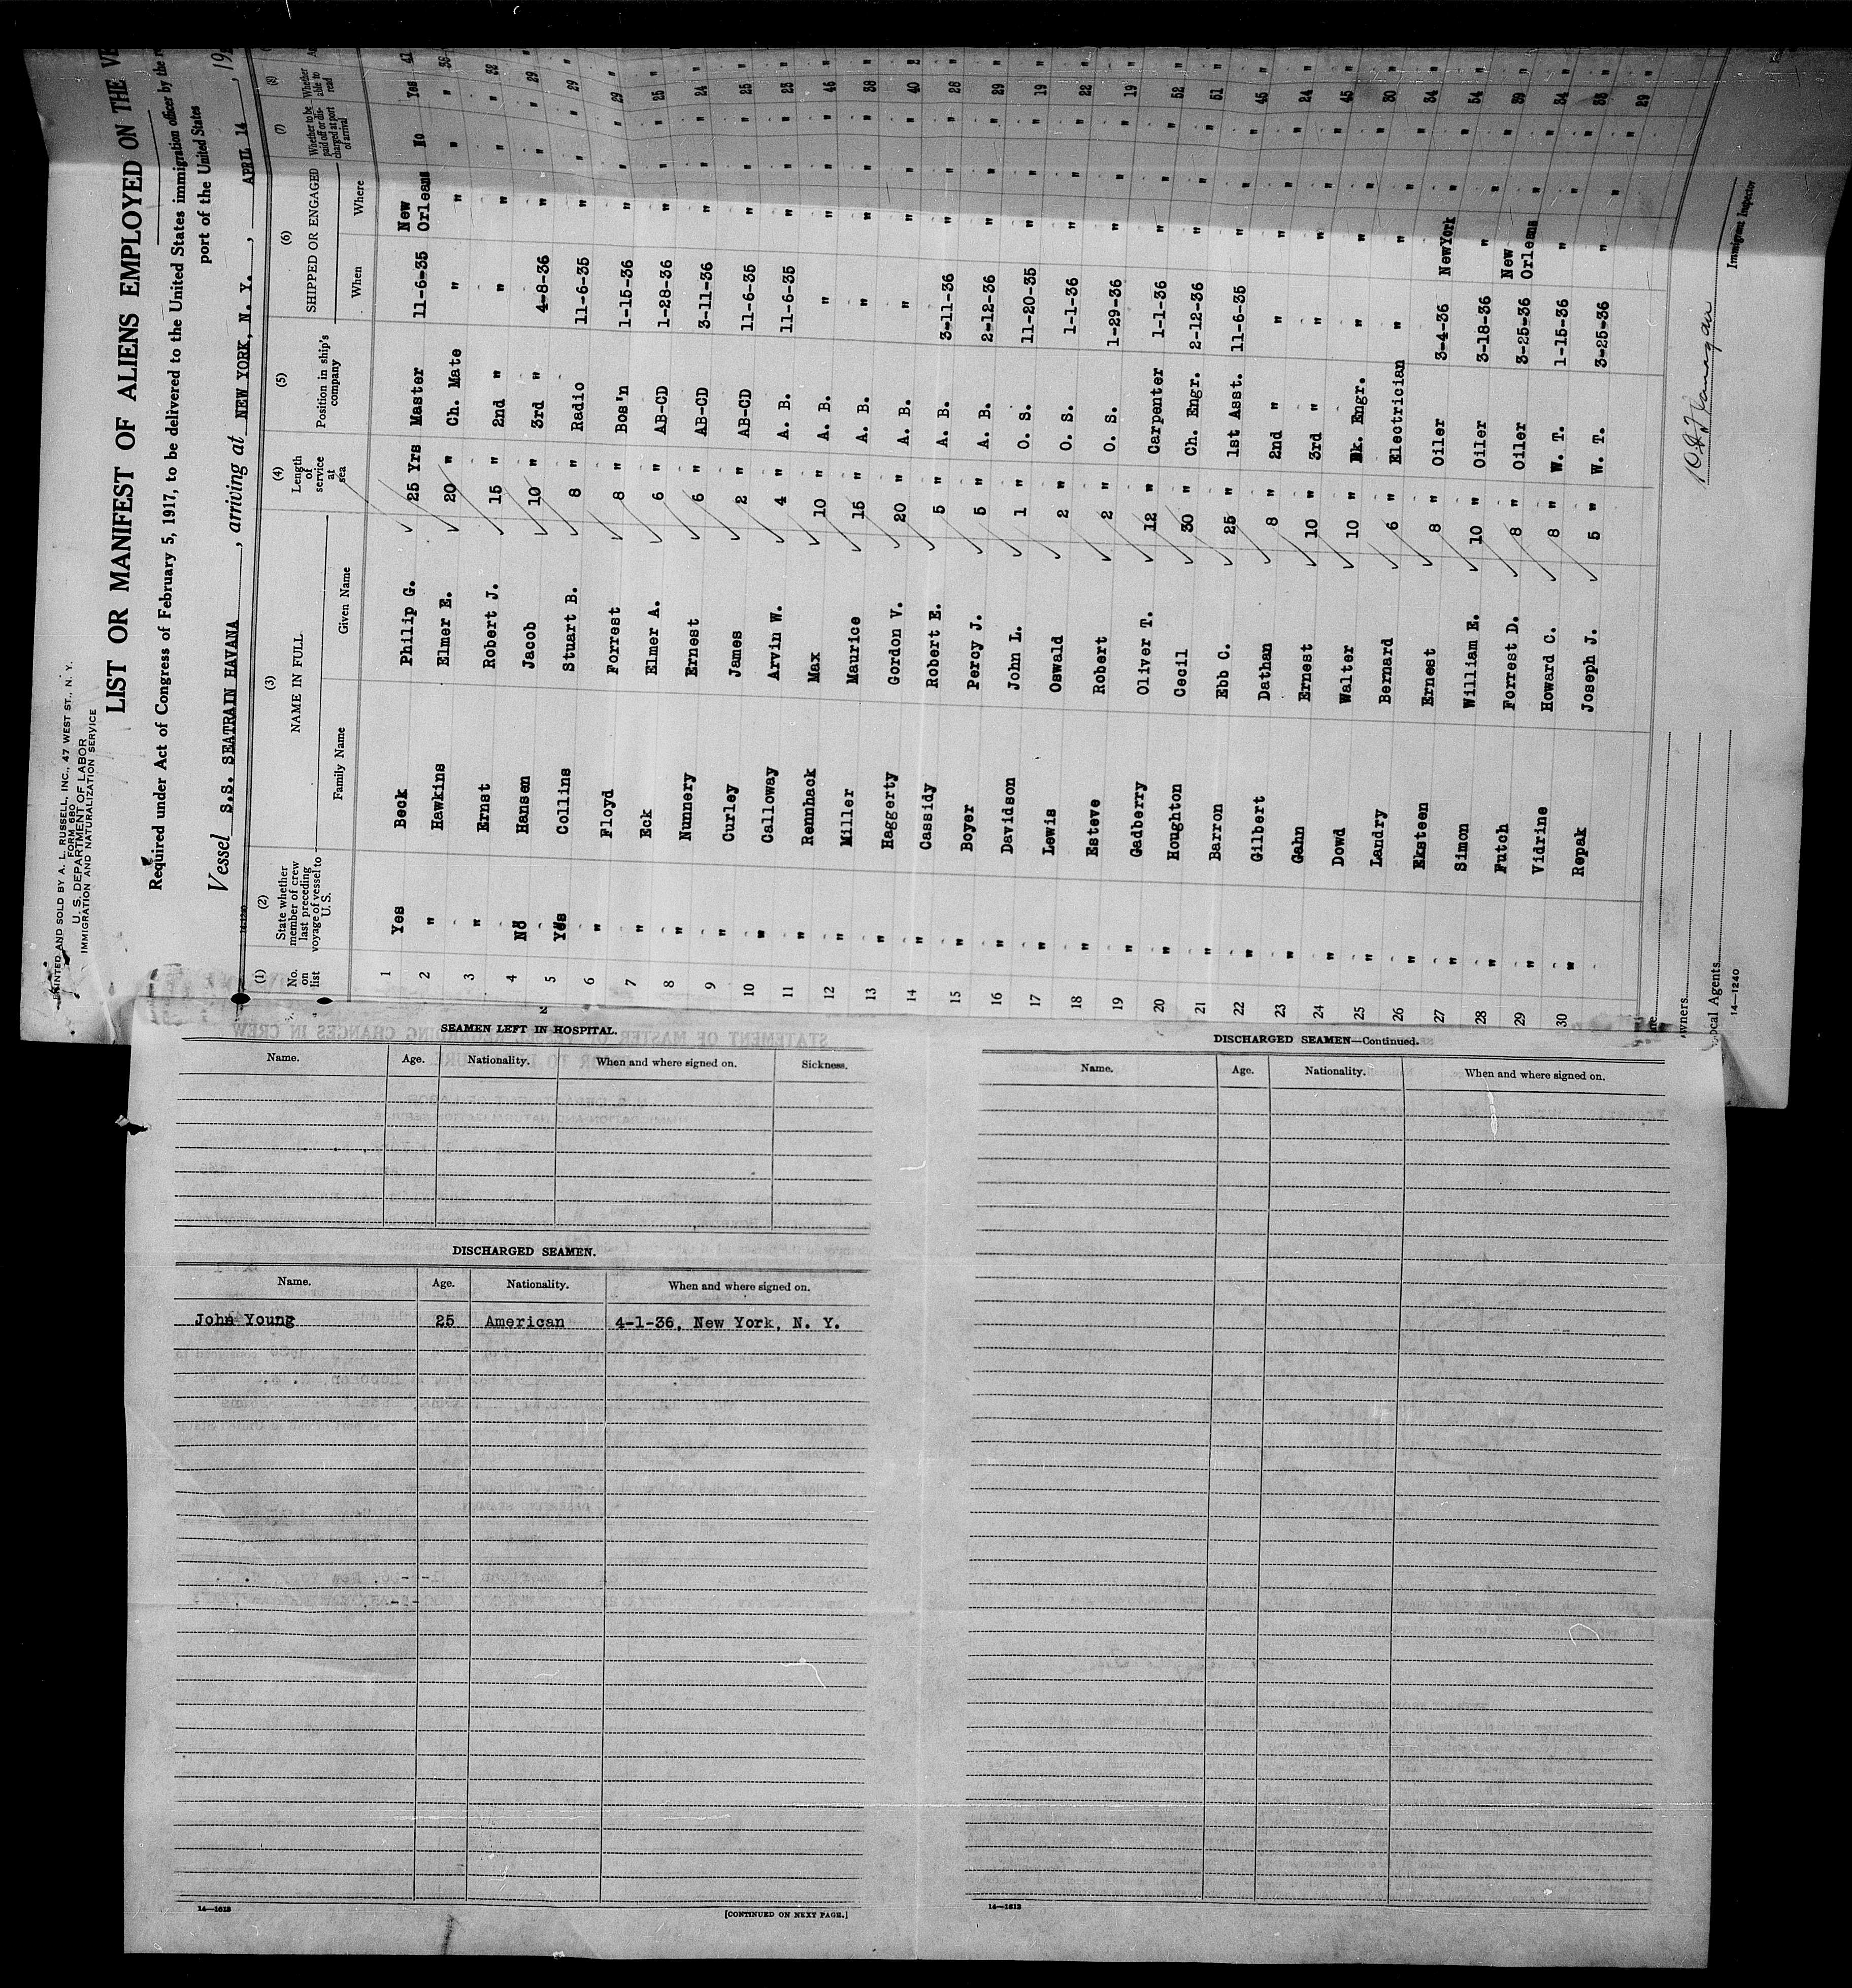 PRINTED AND SOLD BY A. L. RUSSELL, INC., 47 WEST ST., N. Y.
FORM 680
U. S. DEPARTMENT OF LABOR
IMMIGRATION AND NATURALIZATION SERVICE
LIST OR MANIFEST OF ALIENS EMPLOYED ON THE VE
Required under Act of Congress of February 5, 1917, to be delivered to the United States immigration officer by the r
port of the United States
Vessel S.S. SEATRAIN HAVANA, arriving at NEW YORK, N. Y., APRIL 14, 19
14-1240
(1) No. on list (2) State whether member of crew last preceding voyage of vessel to U. S. (3) NAME IN FULL Family Name Given Name (4) Length of service at sea (5) Position in ship's company (6) SHIPPED OR ENGAGED When Where (7) Whether to be paid off or discharged at port of arrival (8) Whether able to read
1 Yes Beck Philip G. 25 Yrs Master 11-6-35 New Orleans No Yes 41
2 " Hawkins Elmer E. 20 " Ch. Mate " " " " 36
3 " Ernst Robert J. 15 " 2nd " " " " "
4 No Hansen Jacob 10 " 3rd " 4-8-36 " " " 29
5 Yes Collins Stuart B. 8 " Radio 11-6-35 " " " 29
6 " Floyd Forrest 8 " Bos'n 1-15-36 " " " 29
7 " Eck Elmer A. 6 " AB-CD 1-28-36 " " " 25
8 " Nunnery Ernest 6 " AB-CD 3-11-36 " " " 24
9 " Curley James 2 " AB-CD 11-6-35 " " " 25
10 " Calloway Arvin W. 4 " A. B. 11-6-35 " " " 23
11 " Rennhack Max 10 " A. B. " " " " 46
12 " Miller Maurice 15 " A. B. " " " " 38
13 " Haggerty Gordon V. 20 " A. B. " " " " 40
14 " Cassidy Robert E. 5 " A. B. 3-11-36 " " " 28
15 " Boyer Percy J. 5 " A. B. 2-12-36 " " " 29
16 " Davidson John L. 1 " O. S. 11-20-35 " " " 19
17 " Lewis Oswald 2 " O. S. 1-1-36 " " " 22
18 " Esteve Robert 2 " O. S. 1-29-36 " " " 19
19 " Gadberry Oliver T. 12 " Carpenter 1-1-36 " " " 52
20 " Houghton Cecil 30 " Ch. Engr. 2-12-36 " " " 51
21 " Barron Ebb C. 25 " 1st Asst. 11-6-35 " " " 45
22 " Gilbert Dathan 8 " 2nd " " " " " 24
23 " Gahn Ernest 10 " 3rd " " " " " 45
24 " Dowd Walter 10 " Dk. Engr. " " " " 30
25 " Landry Bernard 6 " Electrician " " " " 34
26 " Eksteen Ernest 8 " Oiler 3-4-36 NewYork " " 54
27 " Simon William E. 10 " Oiler 3-18-36 " " " 39
28 " Futch Forrest D. 8 " Oiler 3-25-36 New Orleans " " 34
29 " Vidrine Howard C. 8 " W. T. 1-15-36 " " " 35
30 " Repak Joseph J. 5 " W. T. 3-25-36 " " " 29
wners
ocal Agents
14—1240
Immigrant Inspector
SEAMEN LEFT IN HOSPITAL.
Name. Age. Nationality. When and where signed on. Sickness.
DISCHARGED SEAMEN.
Name. Age. Nationality. When and where signed on.
John Young 25 American 4-1-36, New York, N. Y.
14—1613
[CONTINUED ON NEXT PAGE.]
DISCHARGED SEAMEN—Continued.
Name. Age. Nationality. When and where signed on.
14—1613